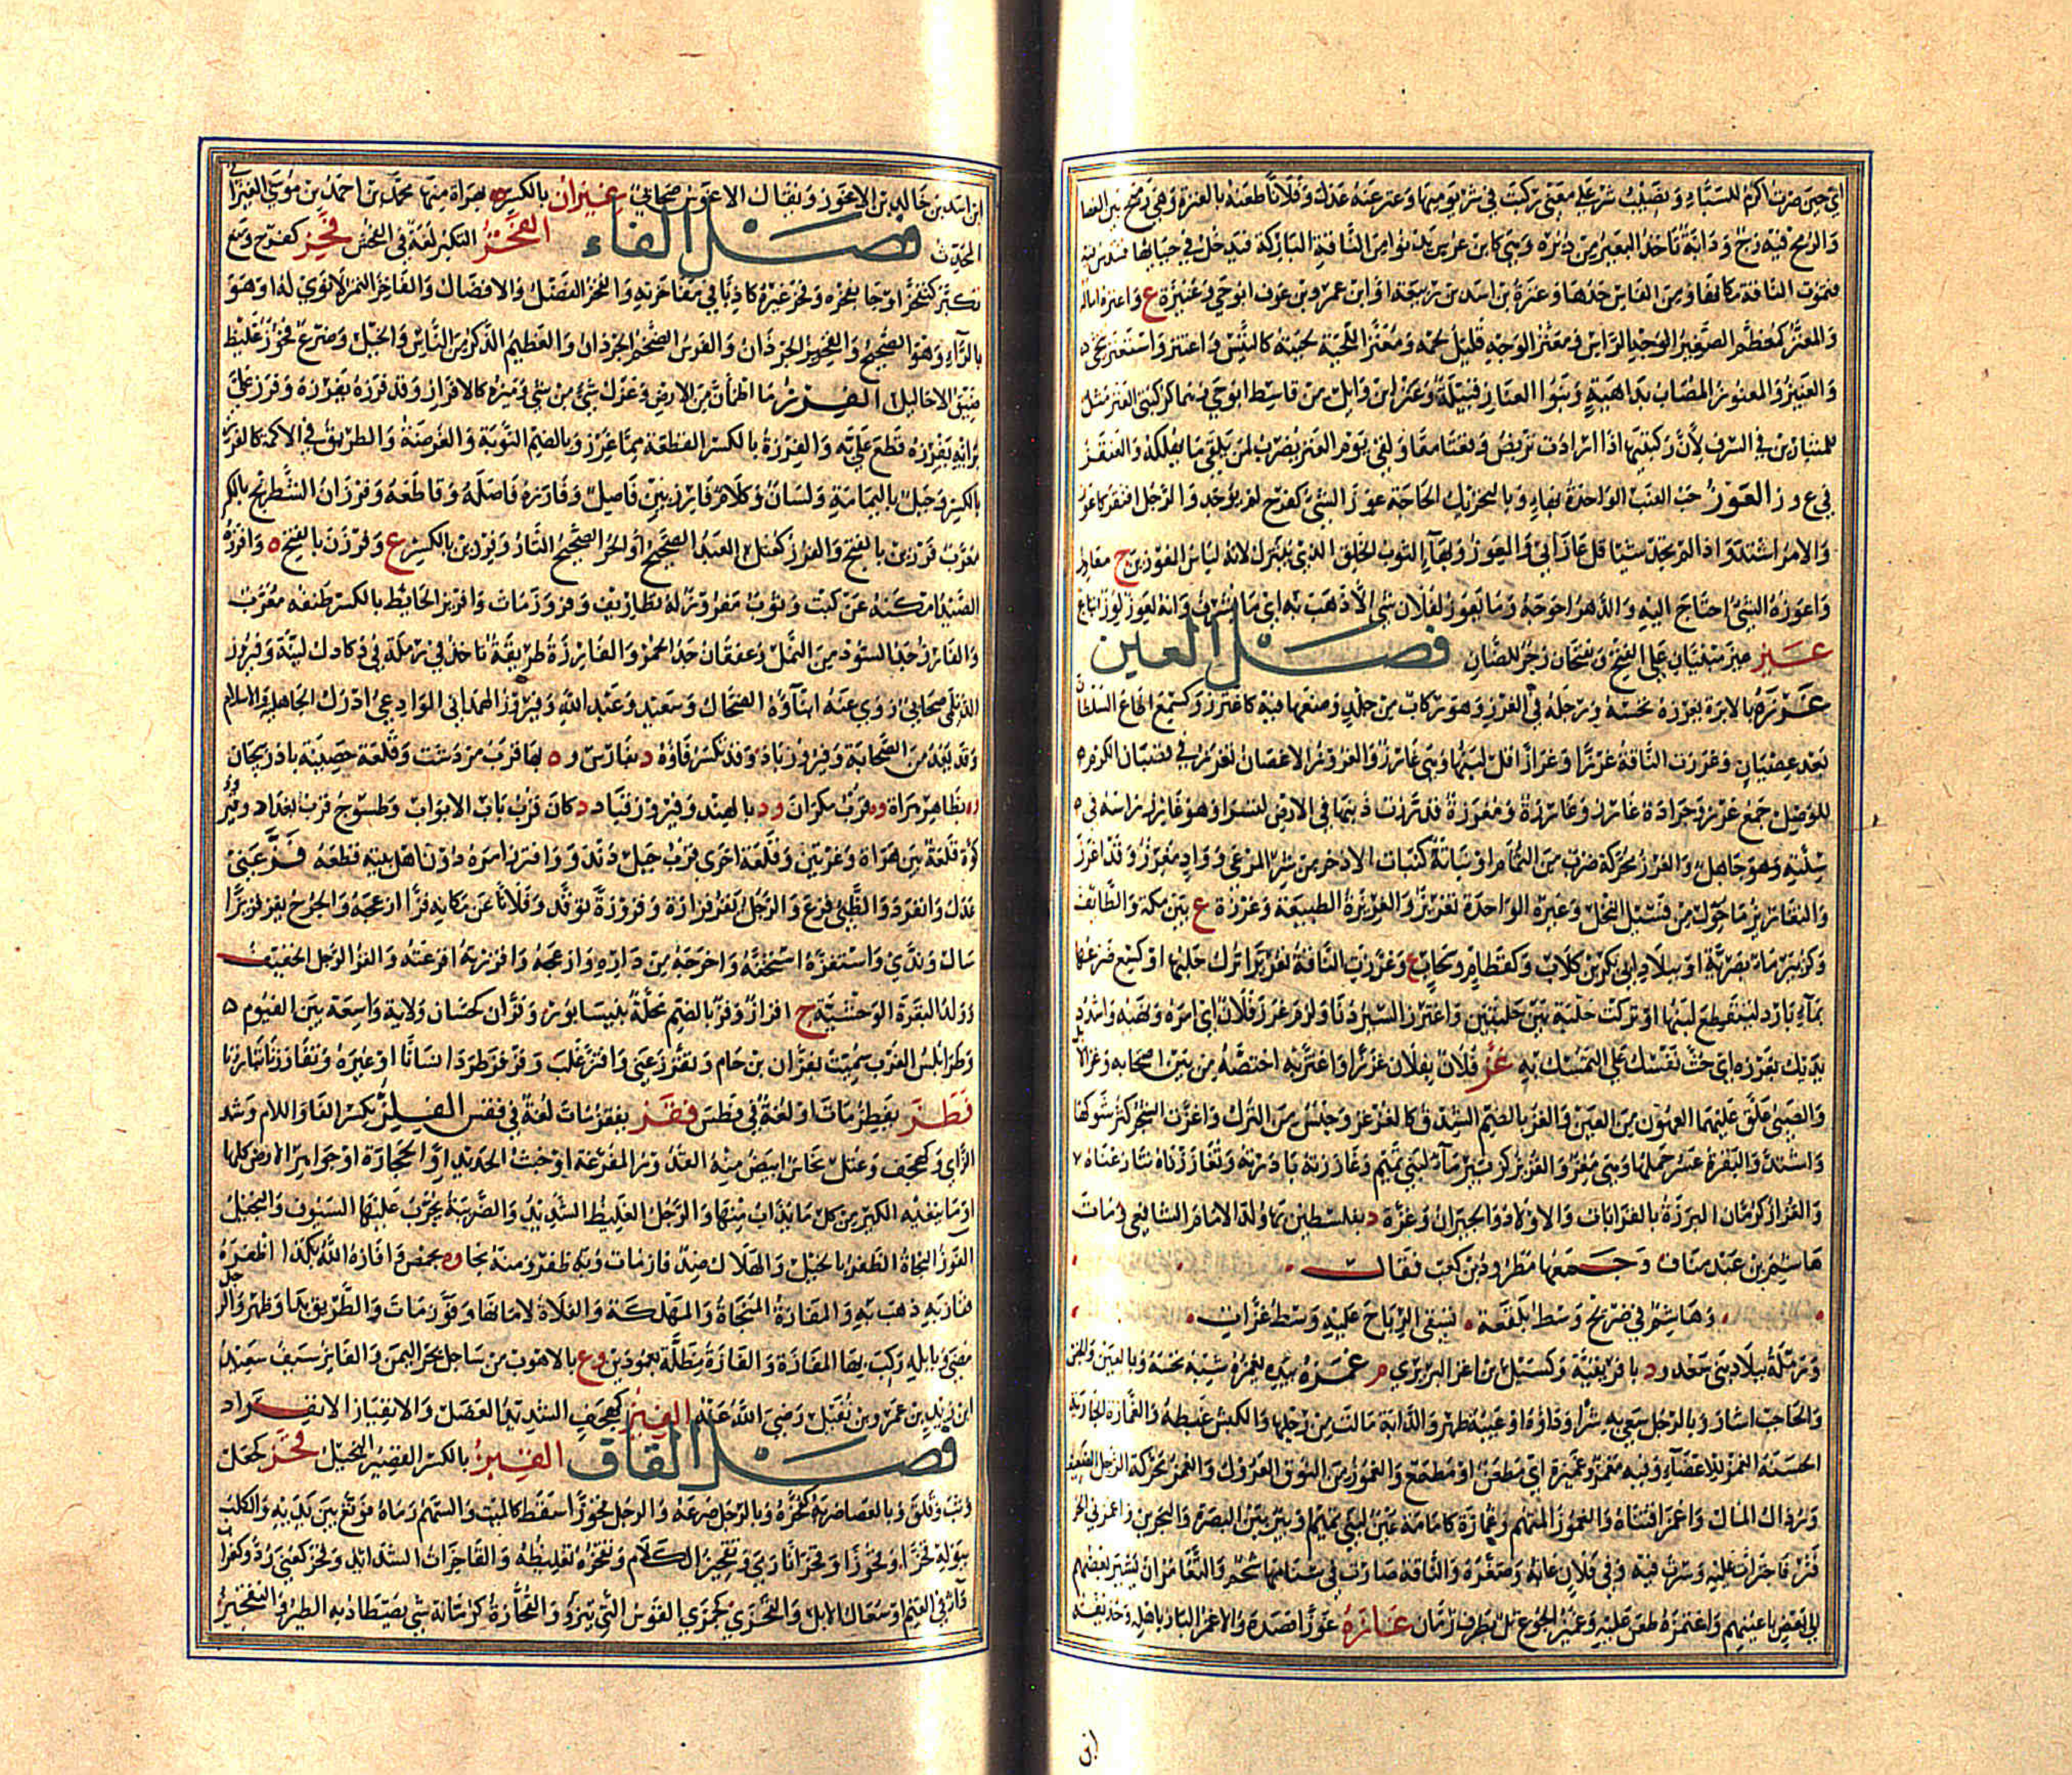 اي حين ضربت اكرم للسباء وتصليب شر على معنى ركبت في شر يوميها وعنز عنه عدل وفلانا طعنه بالعنزة وهي رميح بين العصا
والرمح فيه زج ودابة تاخذ البعير من دبره وهي كابن عرس تدنو من الناقة الباركة فتدخل في حيائها فتندس فيه
فتموت الناقة مكانها ومن الفاس حدها وعنزة بن اسد بن ربيعة او ابن عمرو بن عوف ابو حي وعنيزة ع واعنزه اماله
والمعنز كمعظم الصغير الراس ومعنز الوجه قليل لحمه ومعنز اللحية لحيته كالتيس واعتنز واستعنز تنحى
والعنيز والمعنوز المصاب بداهية وبنو العناز قبيلة وعنز ابن وائل بن قاسط ابو حي وهما كركبتي العنز مثل
للمتباريين في الشرف لان ركبتيها اذا ارادت تربض وقعتا معا ولقي يوم العنز يضرب لمن يلقى ما يهلكه والعنقز
في ع ق ز العوز حب العنب الواحدة بهاء وبالتحريك الحاجة عوز الشيء كفرح لم يوجد والرجل افتقر كاعوز
والامر اشتد واذا لم تجد شيئا قل عازني والمعوز وبهاء الثوب الخلق الذي يبتذل لانه لباس المعوزين ج معاوز
واعوزه الشيء احتاج اليه والدهر احوجه وما يعوز لفلان شيء الا ذهب به اي ما يشرف وانه لعوز لوز اتباع
عيز عيز مبنيان على الفتح وتفتحان زجر للضان فصل الغين
غرزه بالابرة يغرزه نخسه ورجله في الغرز وهو ركاب من جلد وضعها فيه كاغترز وكسمع اطاع السلطان
بعد عصيان وغرزت الناقة غرزا وغرازا قل لبنها وهي غارز والغروز الاغصان تغرز في قضبان الكرم
للوصل جمع غرز وجرادة غارز وغارزة ومغرزة قد رزت ذنبها في الارض لتسرا وهو غارز راسه في
سنته وهو جاهل والغرز محركة ضرب من الثمام او نباته كنبات الاذخر من شر المرعى وواد مغرز وقد اغرز
والتغاريز ما حول من فسيل النخل وغيره الواحدة تغريز والغريزة الطبيعة وغرزة ع بين مكة والطائف
وكزبير ماء بضرية او ببلاد ابي بكر بن كلاب وكقطام وسحاب ع وغرزت الناقة تغريزا ترك حلبها او كسع ضرعها
بماء بارد لينقطع لبنها او تركت حلبة بين حلبتين واغترز السير دنا والزم غرز فلان اي امره ونهيه واشدد
يديك بغرزه اي حث نفسك على التمسك به غز فلان بفلان غززا واغتز به اختصه من بين اصحابه وغز الابل
والصبي علق عليهما العهون من العين والغز بالضم الشدق كالغزغز وجنس من الترك واغزت الشجر كثر شوكها
واشتد والبقرة عسر حملها وهي مغز والغزيز كزبير ماء لبني تميم وغاززته بادرته وتغاززناه تنازعناه
والغزاز كرمان البررة بالقرابات والاولاد والجيران وغزة د بفلسطين بها ولد الامام الشافعي ومات
هاشم بن عبد مناف وجمعها مطرود بن كعب فقال
وهاشم في ضريح وسط بلقعة تسفي الرياح عليه وسط غزات
ورملة ببلاد بني سعد ود بافريقية وكسيل بن اغز البربري م غمزه بيده يغمزه شبه نخسه وبالعين والجفن
والحاجب اشار وبالرجل سعى به شرا وداؤه او عيبه ظهر والدابة مالت من رجلها والكبش غبطه والغمازة الجارية
الحسنة الغمز للاعضاء وفيه مغمز وغميزة اي مطعن او مطمع والغموز من النوق العروك والغمز محركة الرجل الضعيف
ورذال المال واغمز اقتناه والغموز المتهم وغمازة كثمامة عين لبني تميم او بئر بين البصرة والبحرين واغمزني الحر
فتر فاجترات عليه وسرت فيه وفي فلان عابه وصغره والناقة صارت في سنامها شحم والتغامز ان يشير بعضهم
الى بعض باعينهم واغتمزه طعن عليه وغميز الجوع تل بطرف رمان غازه غوزا قصده والاغوز البار باهله وحذيفة
ان
ابن اسد بن خالد بن الاغوز ويقال الاغوس صحابي غيزان بالكسر ة بهراة منها محمد بن احمد بن موسى الغيزاني
المحدث فصل الفاء الفخز التكبر لغة في الفخس فخز كفرح ومنع
تكبر كتفخز او جاء بفخره وفخر غيره كاذبا في مفاخرته والفخز الفضل والافضال والفاخز التمر لا نوى له او هو
بالراء وهو الصحيح والفيخز الجردان والفرس الضخم الجردان والعظيم الذكر من الناس والخيل وضرع فخوز غليظ
ضيق الاحاليل الفرز ما اطمان من الارض وعزل شيء من شيء وميزه كالافراز وقد فرزه يفرزه وفرز علي
برايه يفرزه قطع علي به والفرزة بالكسر القطعة مما غرز وبالضم النوبة والفرصة والطريق في الاكمة كالفرز
بالكسر وجبل باليمامة ولسان وكلام فارز بين فاصل وفارزه فاصله وقاطعه وفرزان الشطرنج بالكسر
معرب فرزين بالفتح والفرز كعتل العبد الصحيح او الحر الصحيح التار وفرزين بالكسر ع وفرزن بالفتح ة وافرزه
الصيد امكنه عن كثب وثوب مفروز له تطاريف وفروز مات وافريز الحائط بالكسر طنفه معرب
والفارز جد السود من النمل وعقفان جد الحمر والفارزة طريقة تاخذ في رملة في دكادك لينة وفيروز
الديلمي صحابي روى عنه ابناؤه الضحاك وسعيد وعبد الله وفيروز الهمداني الوادعي ادرك الجاهلية والاسلام
وقد يعد من الصحابة وفيروزاباد وقد تكسر فاؤه د بفارس وة بها قرب مردشت وقلعة حصينة باذربيجان
وة بظاهر هراة وة قرب مكران ود بالهند وفيروز قباد د كان قرب باب الابواب وطسوج قرب بغداد وفيروز
كوه قلعة بين هراة وغزنين وقلعة اخرى قرب جبل دنباوند وافترز امره دون اهل بيته قطعه فز عني
عدل وانفرد والظبي فزع والرجل يفز فزازة وفزوزة توقد وفلانا عن مكانه فزا ازعجه والجرح يفز فزيزا
سال وندي واستفزه استخفه واخرجه من داره وازعجه وافززته افزعته والفز الرجل الخفيف
وولد البقرة الوحشية ج افزاز وفز بالضم محلة بنيسابور وفزان كحسان ولاية واسعة بين الفيوم
وطرابلس الغرب سميت بفزان بن حام وتفزز عيي وافتز غلب وفزفز طرد انسانا او غيره وتفاززنا تبارزنا
فطز يفطز مات او لغة في فطس فقز يفقز مات لغة في فقس الفلز بكسر الفاء واللام وشد
الزاي وكهجف وعتل نحاس ابيض منه القدور المفرغة او خبث الحديد او الحجارة او جواهر الارض كلها
او ما ينفيه الكير من كل ما يذاب منها والرجل الغليظ الشديد والضريبة تجرب عليها السيوف والبخيل
الفوز النجاة الظفر بالخير والهلاك ضد فاز مات وبه ظفر ومنه نجا وة بحمص وافازه الله بكذا اظفره
ففاز به ذهب به والمفازة المنجاة والمهلكة والفلاة لا ماء بها وفوز مات والطريق بدا وظهر والرجل
مضى وبابله ركب بها المفازة والفازة مظلة بعمودين وع بالاهواب من ساحل بحر اليمن والفائز سيف سعيد
ابن زيد بن عمرو بن نفيل رضي الله عنه الفيز كهجف الشديد العضل والانفياز الانفراد
فصل القاف القبز بالكسر القصير البخيل قحز كجعل
وثب وقلق وبالعصا ضربه كقحزه وبالرجل صرعه والرجل قحوزا سقط كالميت والسهم رماه فوقع بين يديه والكلب
ببوله قحزا وقحوزا وقحزانا رمى وتقحيز الكلام وتقحزه تغليظه والقاحزات الشدائد وقحز كعني رد وكغراب
داء في الغنم او سعال الابل والقحزي كجمزى القوس التي تنزو والقحازة كرمانة شيء يصطاد به الطير والتقحيز